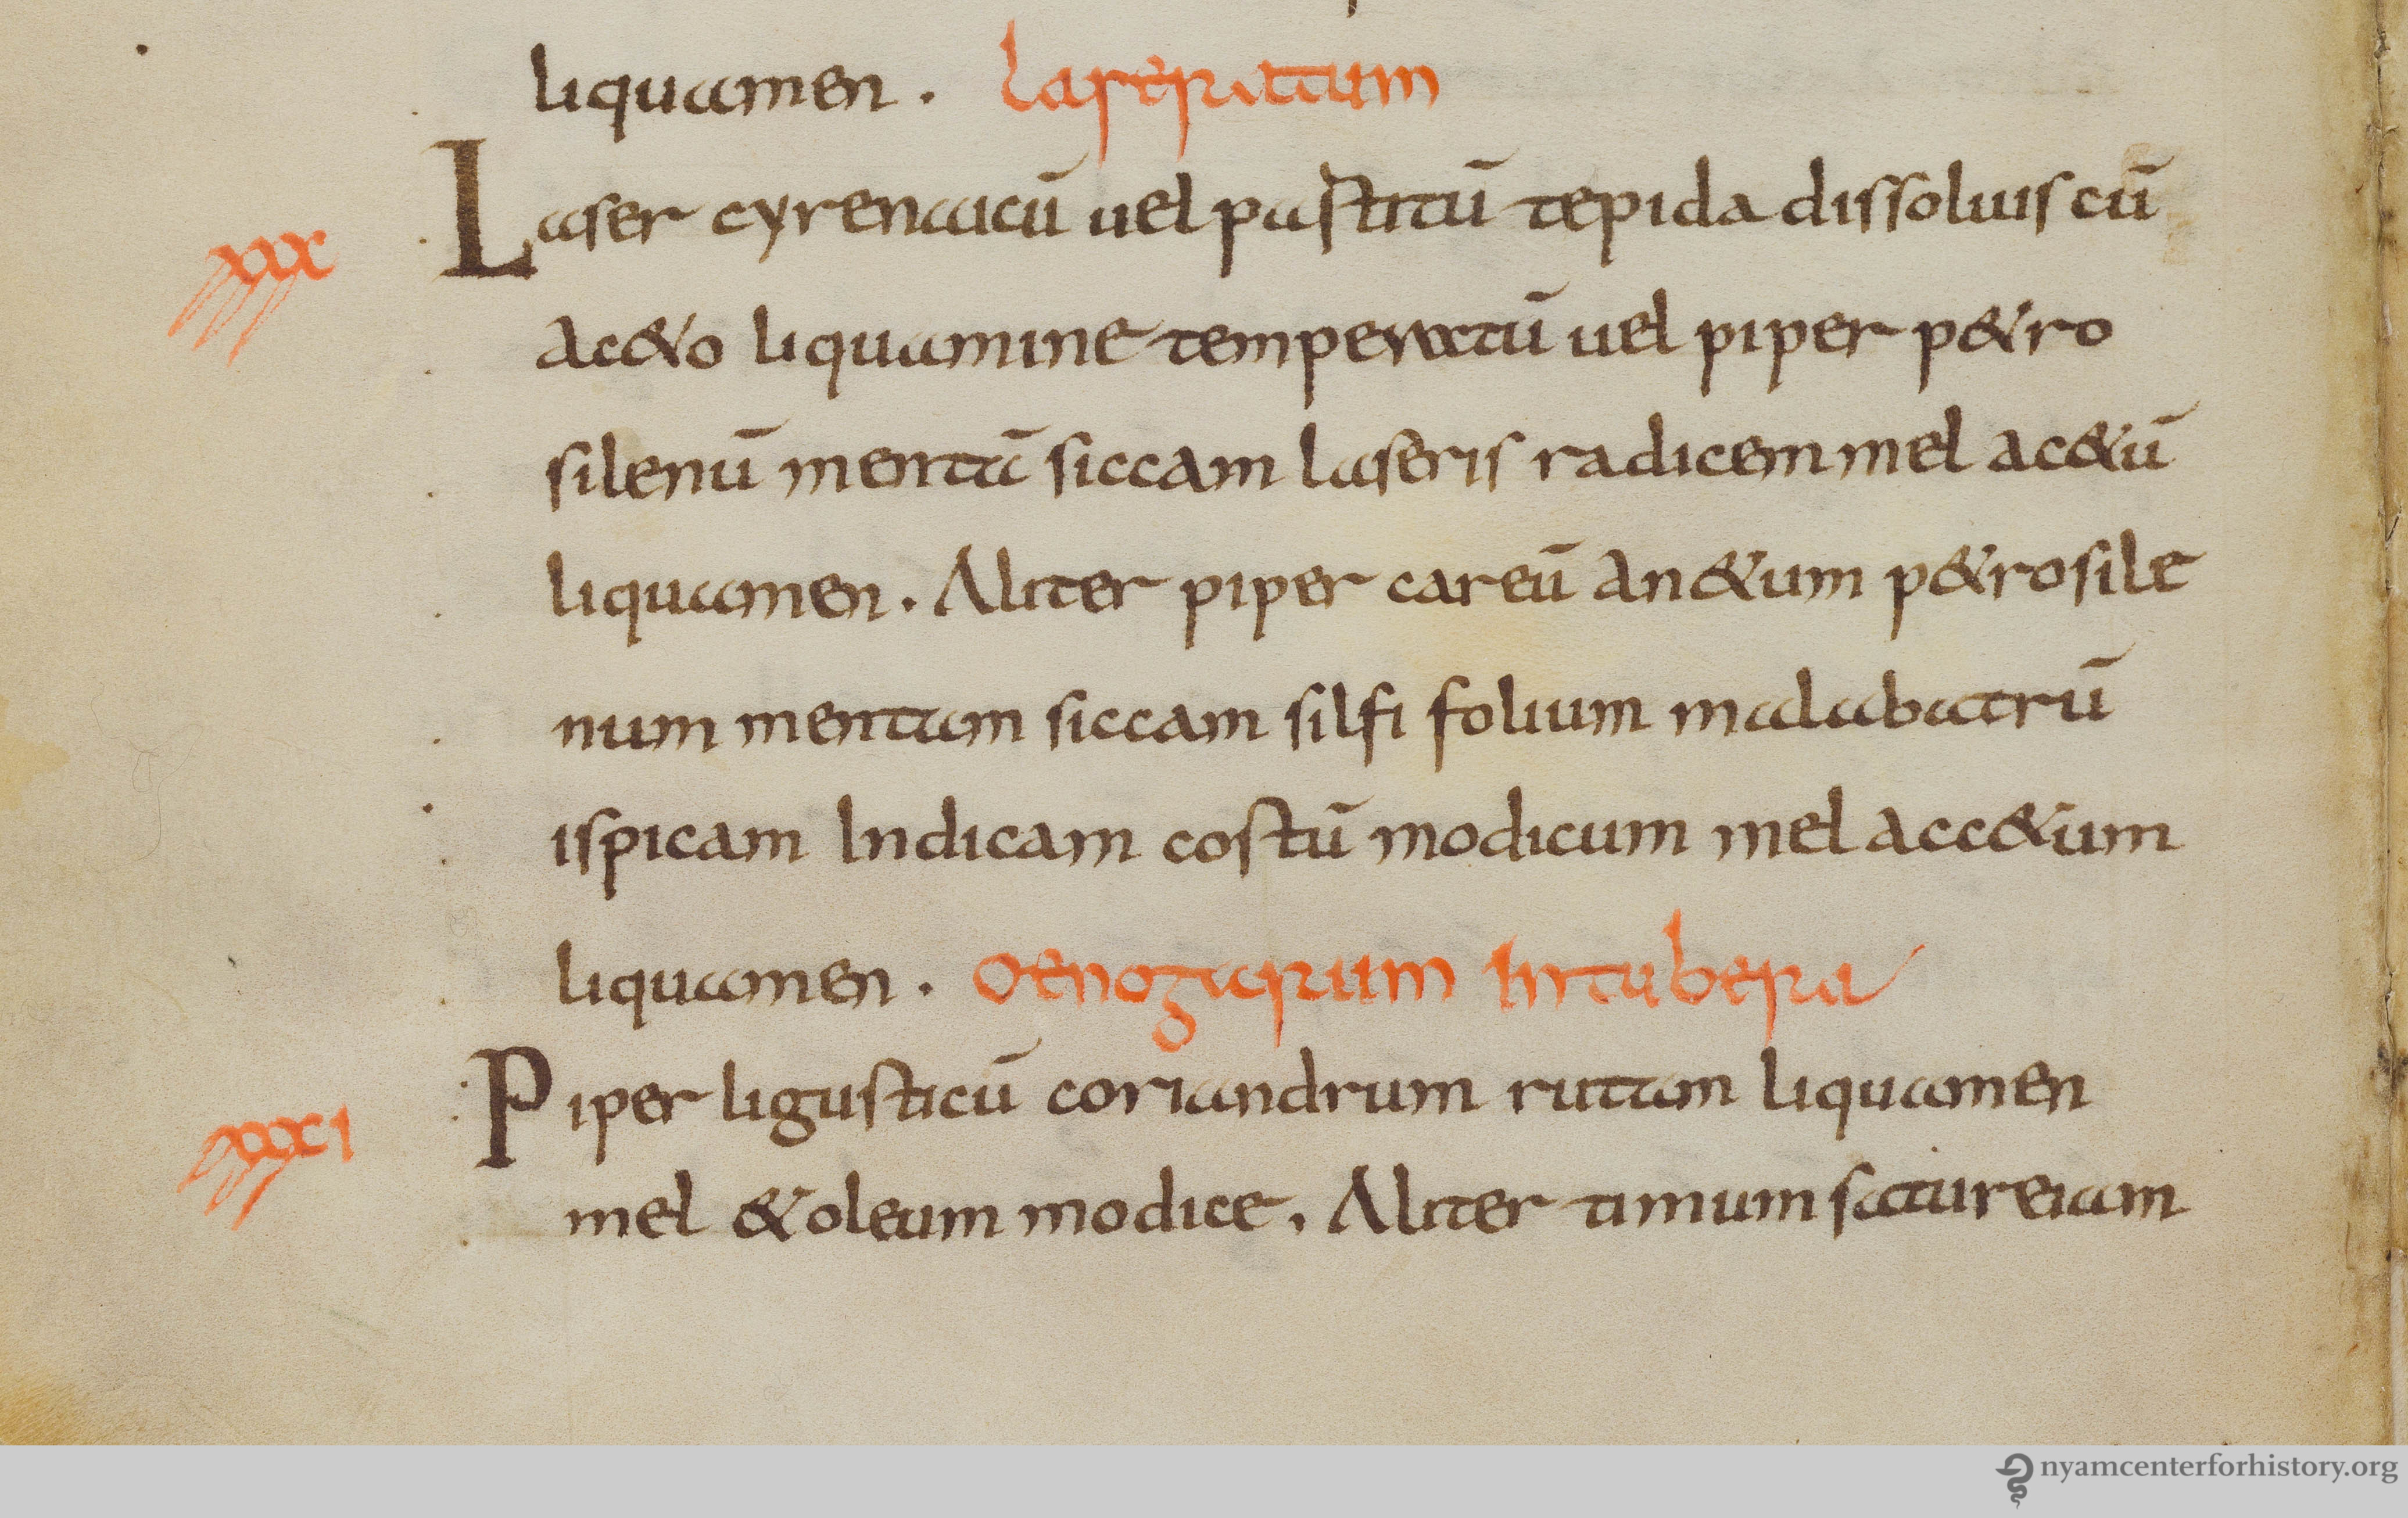 liquamen. laseratum
xxx Laser cyrenaicū uel pastitū tepida dissoluis cū
ac&o liquamine temperatū uel piper p&ro
silenū mentā siccam laseris radicem mel ac&ū
liquamen. Aliter piper careū an&um p&rosile
num mentam siccam silfi folium malabatrū
ispicam Indicam costū modicum mel acc&um
liquamen. oenogarum Intubera
xxxi Piper ligusticū coriandrum rutam liquamen
mel &oleum modice. Aliter timum satureiam
nyamcenterforhistory.org